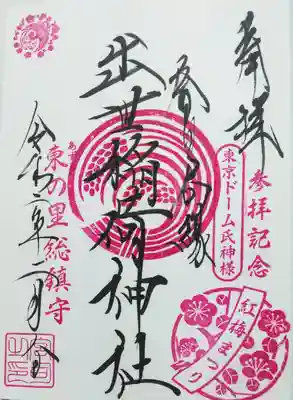 奉拝
参拝記念
東京ドーム氏神様
出世稲荷神社
東の里総鎮守
令和二年二月
紅梅まつり